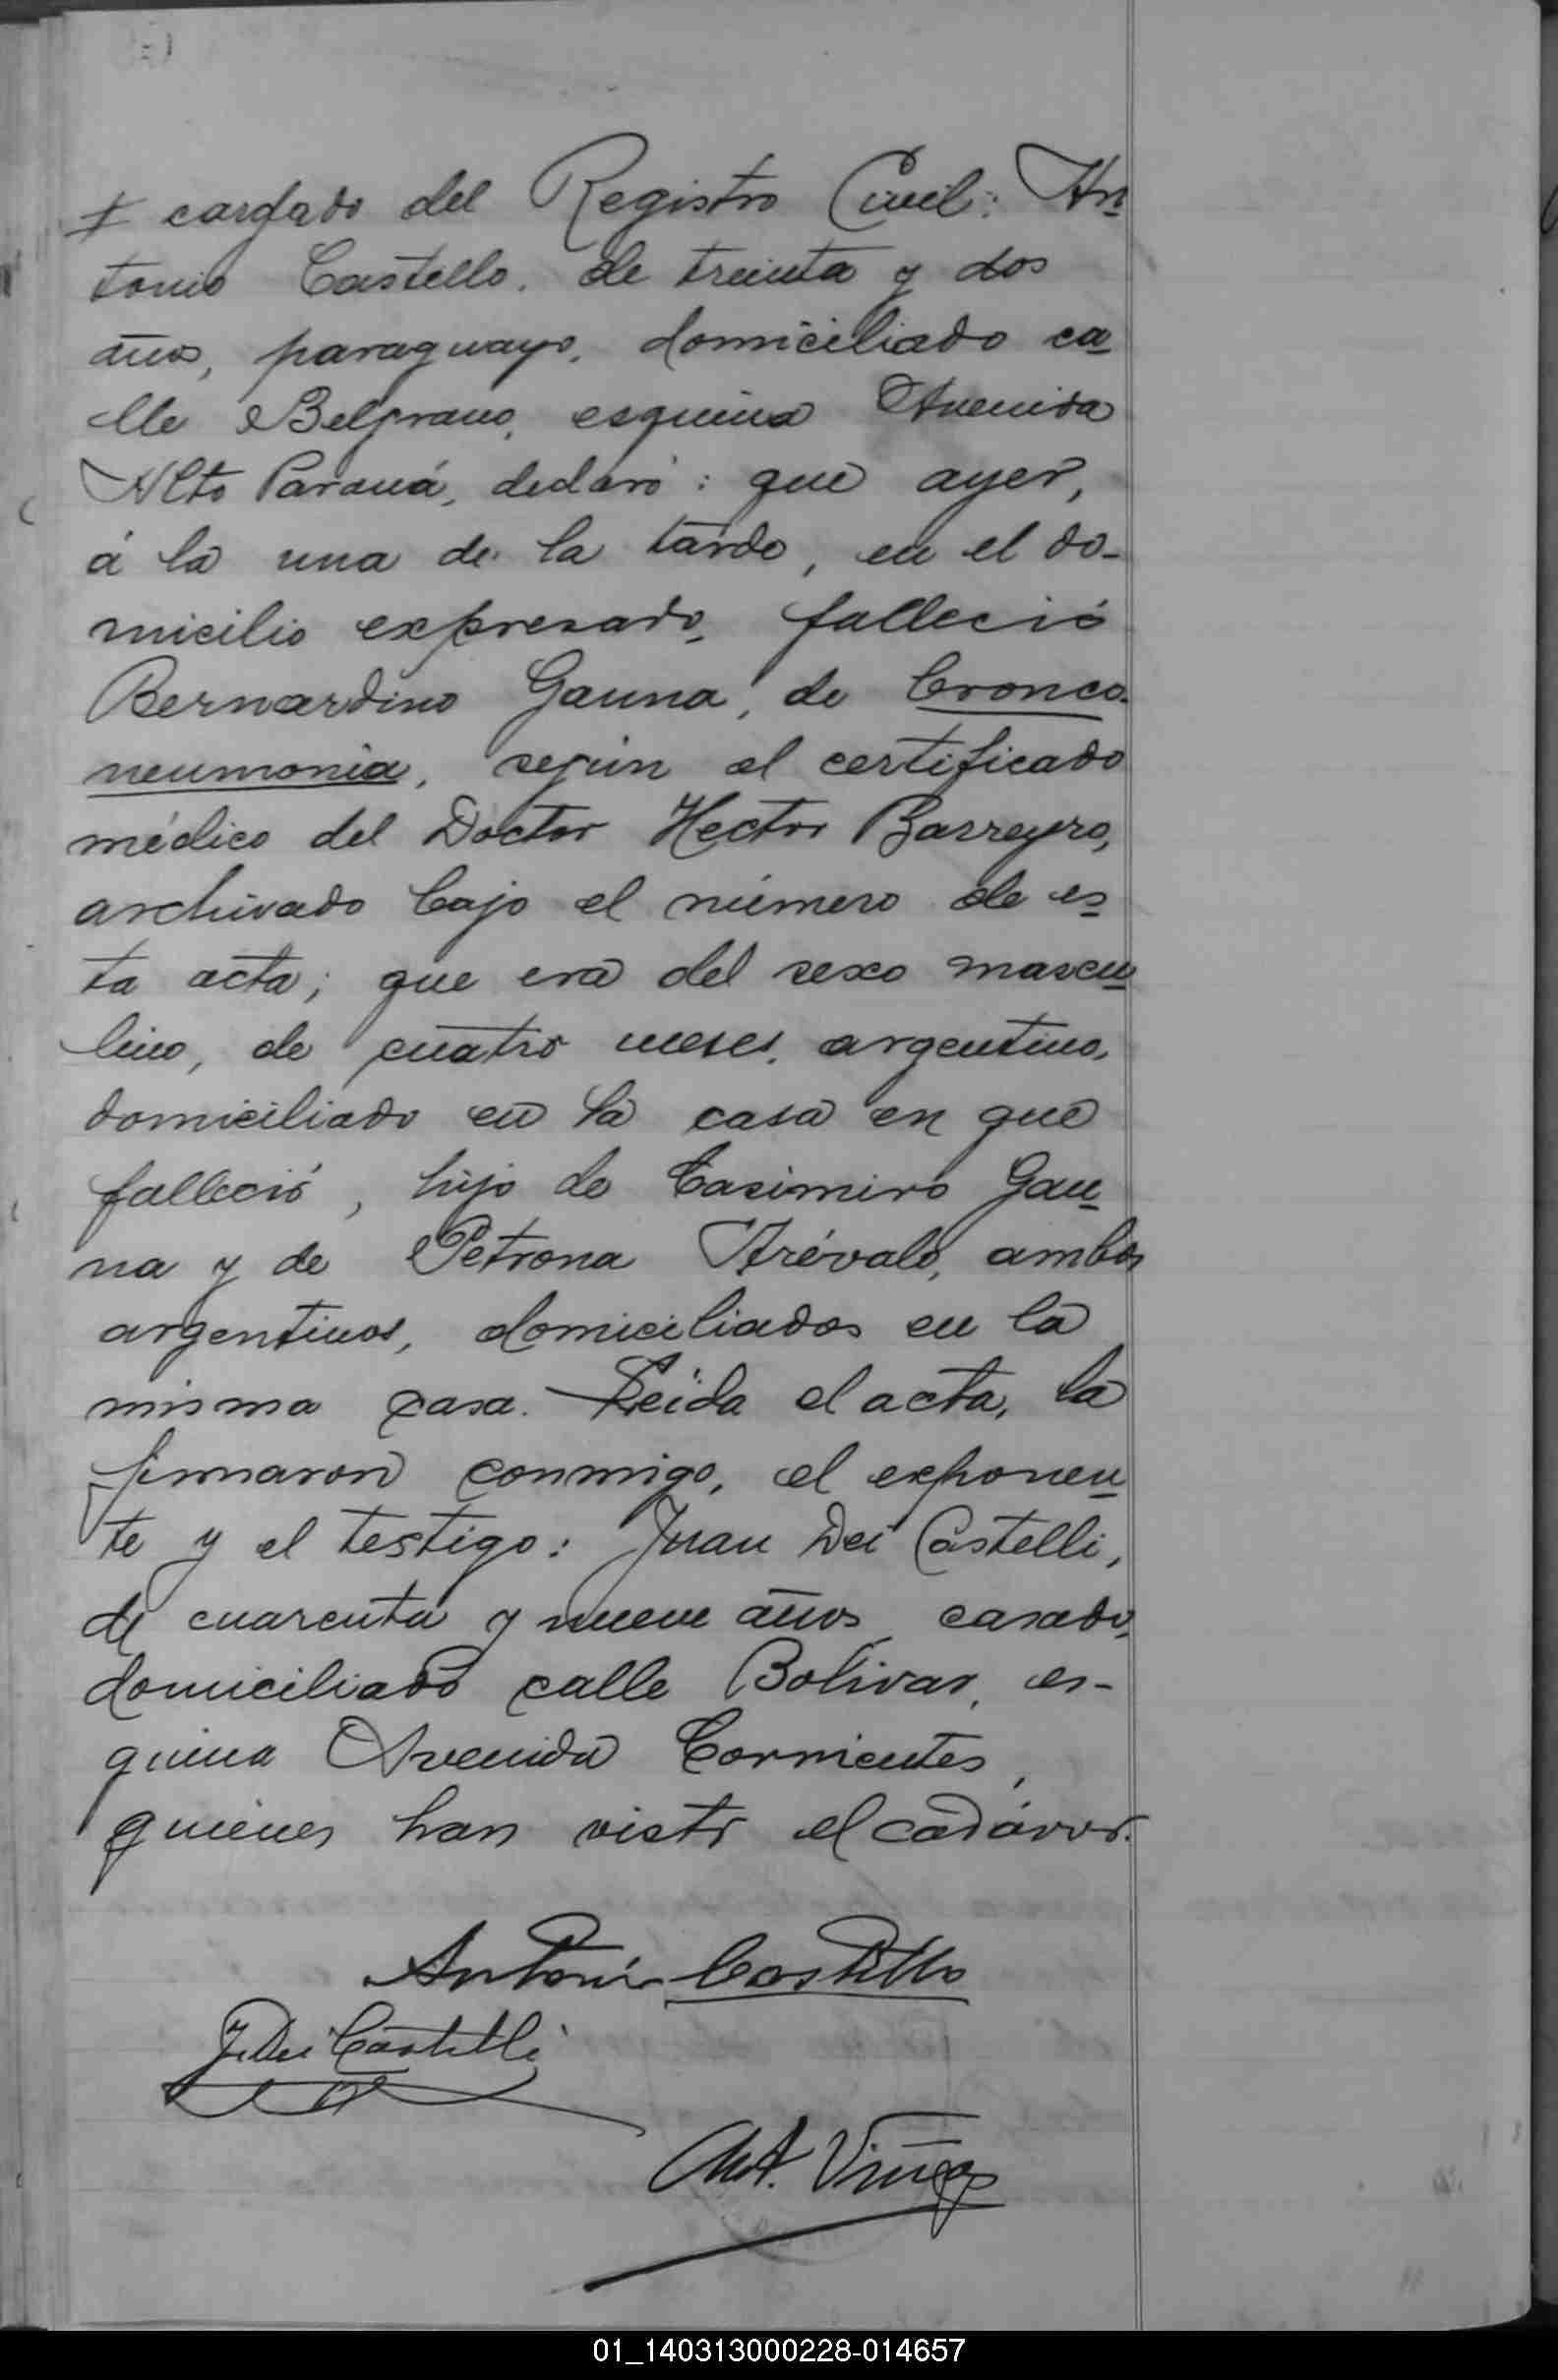 cargado del Registro Civil: An
tonio Castello, de treinta y dos
años, paraguayo, domiciliado ca
lle Belgrano, esquina Avenida
Alto Paraná, declaró: que ayer,
á la una de la tarde, en el do-
micilio expresado, falleció
Bernardino Gauna, de bronco-
neumonia, según el certificado
médico del Doctor Hector Barreyro,
archivado bajo el número de es
ta acta; que era del sexo mascu
lino, de cuatro meses, argentino,
domiciliado en la casa en que
falleció, hijo de Casimiro Gau
na y de Petrona Arévalo, ambos
argentinos, domiciliados en la
misma casa. Leida el acta, la
firmaron conmigo, el exponen
te y el testigo: Juan Dei Castelli,
de cuarenta y nueve años, casado,
domiciliado calle Bolívar, es-
quina Avenida Corrientes,
quienes han visto el cadáver.
Antonio Castello
J. Dei Castelli
Ant. Viñas
01_140313000228-014657